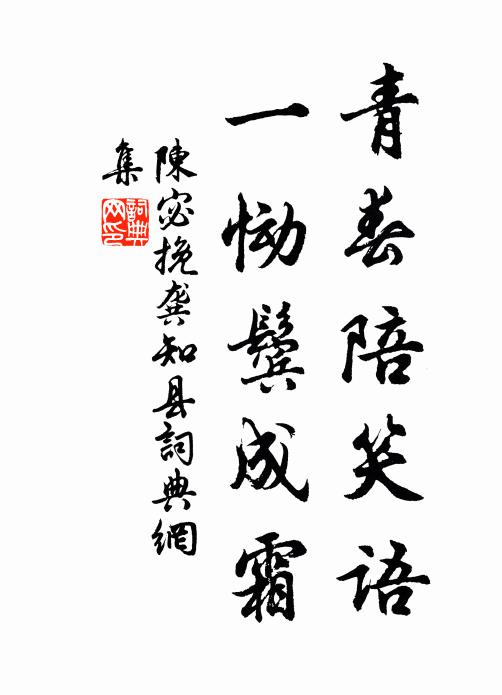 青春陪笑语
一恸鬓成霜
陳宓挽龚知县詞典網
集
詞典
网印